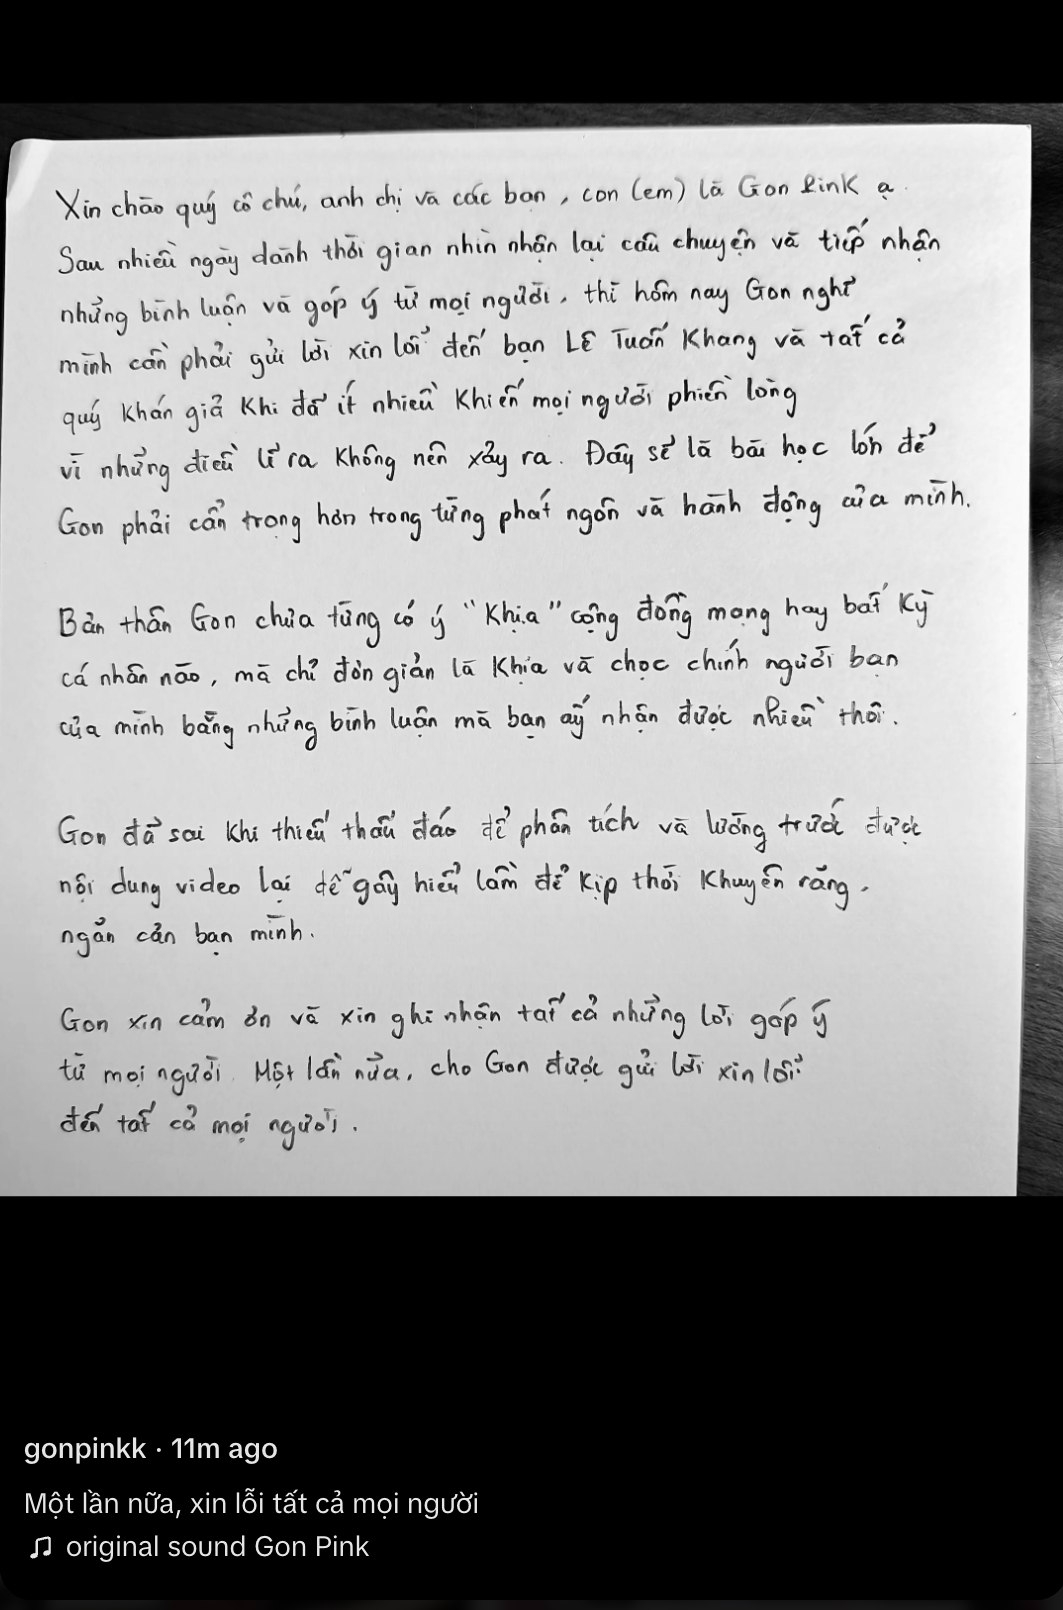 Xin chào quý cô chú, anh chị và các bạn, con (em) là Gon Pink ạ.
Sau nhiều ngày dành thời gian nhìn nhận lại câu chuyện và tiếp nhận
những bình luận và góp ý từ mọi người, thì hôm nay Gon nghĩ
mình cần phải gửi lời xin lỗi đến bạn Lê Tuấn Khang và tất cả
quý khán giả khi đã ít nhiều khiến mọi người phiền lòng
vì những điều lẽ ra không nên xảy ra. Đây sẽ là bài học lớn để
Gon phải cẩn trọng hơn trong từng phát ngôn và hành động của mình.
Bản thân Gon chưa từng có ý "khịa" cộng đồng mạng hay bất kỳ
cá nhân nào, mà chỉ đơn giản là khịa và chọc chính người bạn
của mình bằng những bình luận mà bạn ấy nhận được nhiều thôi.
Gon đã sai khi thiếu thấu đáo để phân tích và lường trước được
nội dung video lại dễ gây hiểu lầm để kịp thời khuyên răng,
ngăn cản bạn mình.
Gon xin cảm ơn và xin ghi nhận tất cả những lời góp ý
từ mọi người. Một lần nữa, cho Gon được gửi lời xin lỗi
đến tất cả mọi người.
gonpinkk · 11m ago
Một lần nữa, xin lỗi tất cả mọi người
original sound Gon Pink